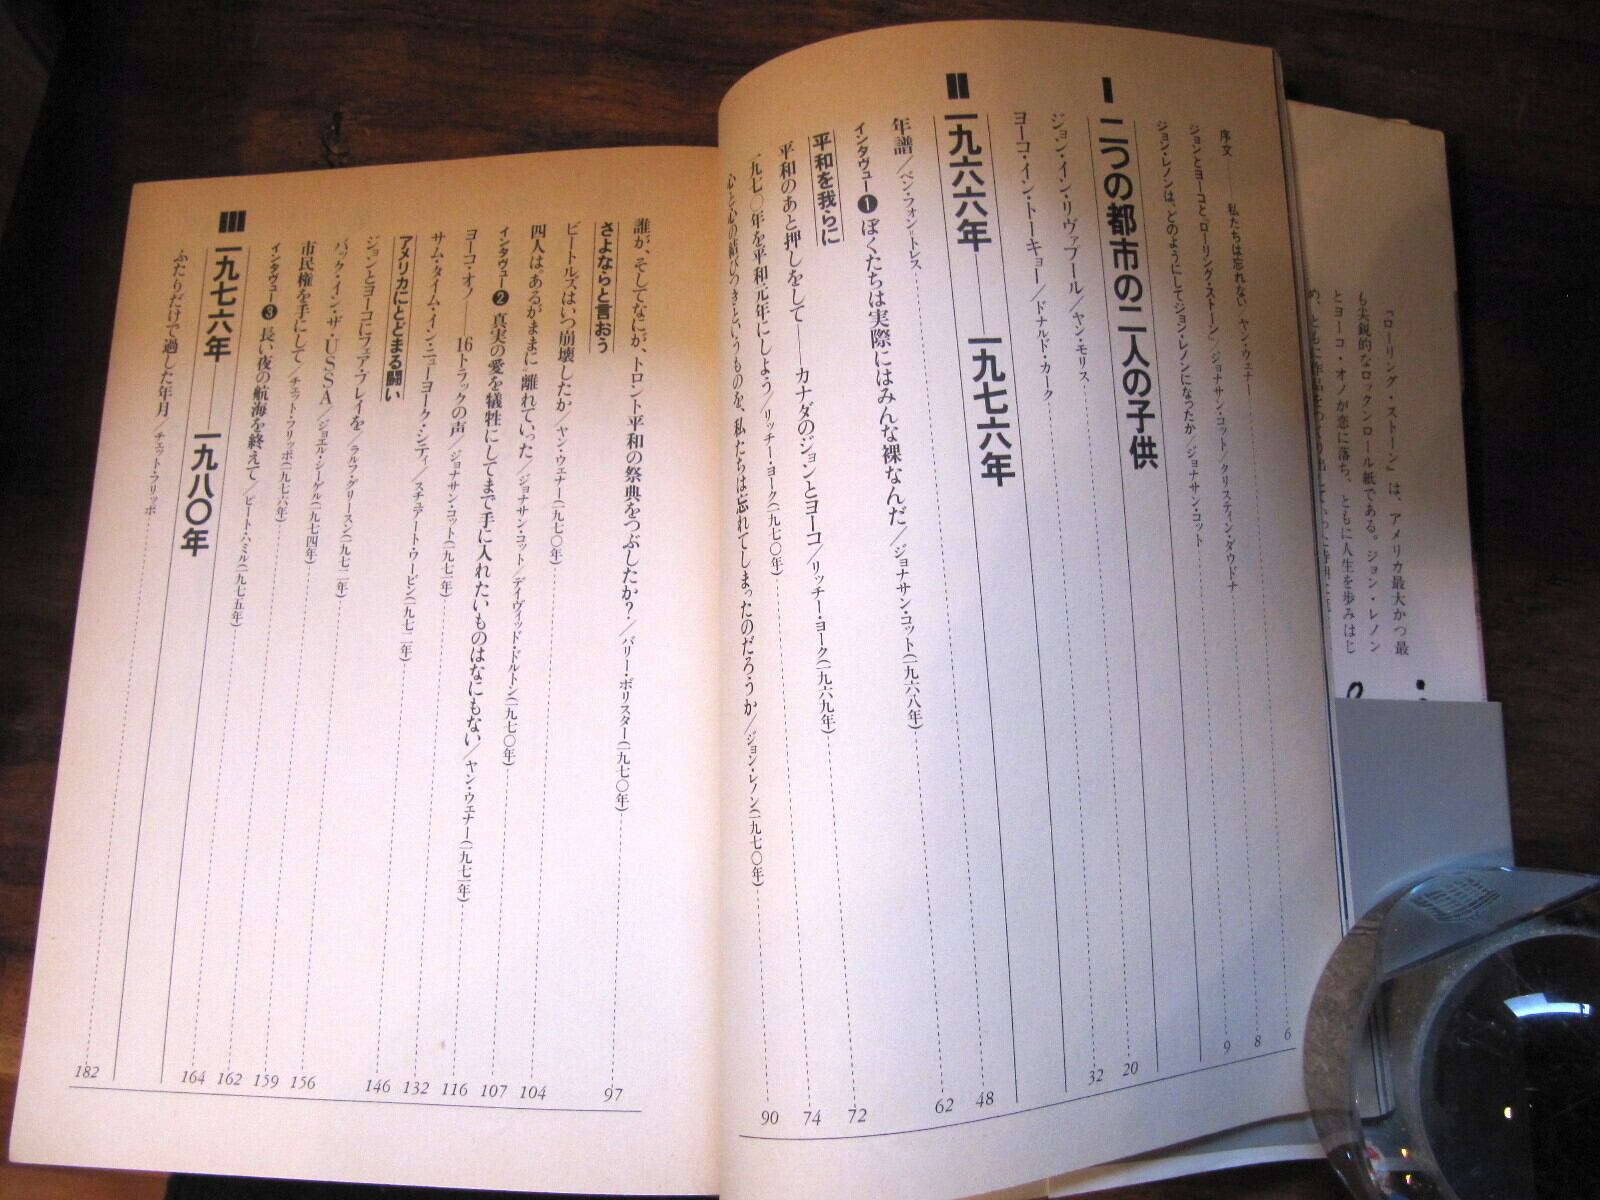 序文――私たちは忘れない／ヤン・ウェナー 6
ジョンとヨーコと『ローリング・ストーン』／ジョナサン・コット／クリスティン・ダウドナ 8
ジョン・レノンは、どのようにしてジョン・レノンになったか／ジョナサン・コット 9
I 二つの都市の二人の子供
ジョン・イン・リヴァプール／ヤン・モリス 20
ヨーコ・イン・トーキョー／ドナルド・カーク 32
II 一九六六年――一九七六年
年譜／ベン・フォン＝トレス 48
インタヴュー❶ ぼくたちは実際にはみんな裸なんだ／ジョナサン・コット(一九六八年) 62
平和を我らに
平和のあと押しをして――カナダのジョンとヨーコ／リッチー・ヨーク(一九六九年) 72
一九七〇年を平和元年にしよう／リッチー・ヨーク(一九七〇年) 74
心と心の結びつきというものを、私たちは忘れてしまったのだろうか／ジョン・レノン(一九七〇年) 90
誰が、そしてなにが、トロント平和の祭典をつぶしたか？／バリー・ボリスター(一九七〇年) 97
さよならと言おう
ビートルズはいつ崩壊したか／ヤン・ウェナー(一九七〇年) 104
四人は“あるがままに”離れていった／ジョナサン・コット／デイヴィッド・ドルトン(一九七〇年) 107
インタヴュー❷ 真実の愛を犠牲にしてまで手に入れたいものはなにもない／ヤン・ウェナー(一九七一年) 116
ヨーコ・オノ――16トラックの声／ジョナサン・コット(一九七一年) 132
サム・タイム・イン・ニューヨーク・シティ／スチュアート・ワービン(一九七二年) 146
アメリカにとどまる闘い
ジョンとヨーコにフェア・プレイを／ラルフ・グリースン(一九七二年) 156
バック・イン・ザ・USSA／ジョエル・シーゲル(一九七四年) 159
市民権を手にして／チェット・フリッポ(一九七六年) 162
インタヴュー❸ 長い夜の航海を終えて／ピート・ハミル(一九七五年) 164
III 一九七六年――一九八〇年
ふたりだけで過した年月／チェット・フリッポ 182
『ローリング・ストーン』は、アメリカ最大かつ最
も尖鋭的なロックンロール紙である。ジョン・レノン
とヨーコ・オノが恋に落ち、ともに人生を歩みはじ
め、ともに作品を